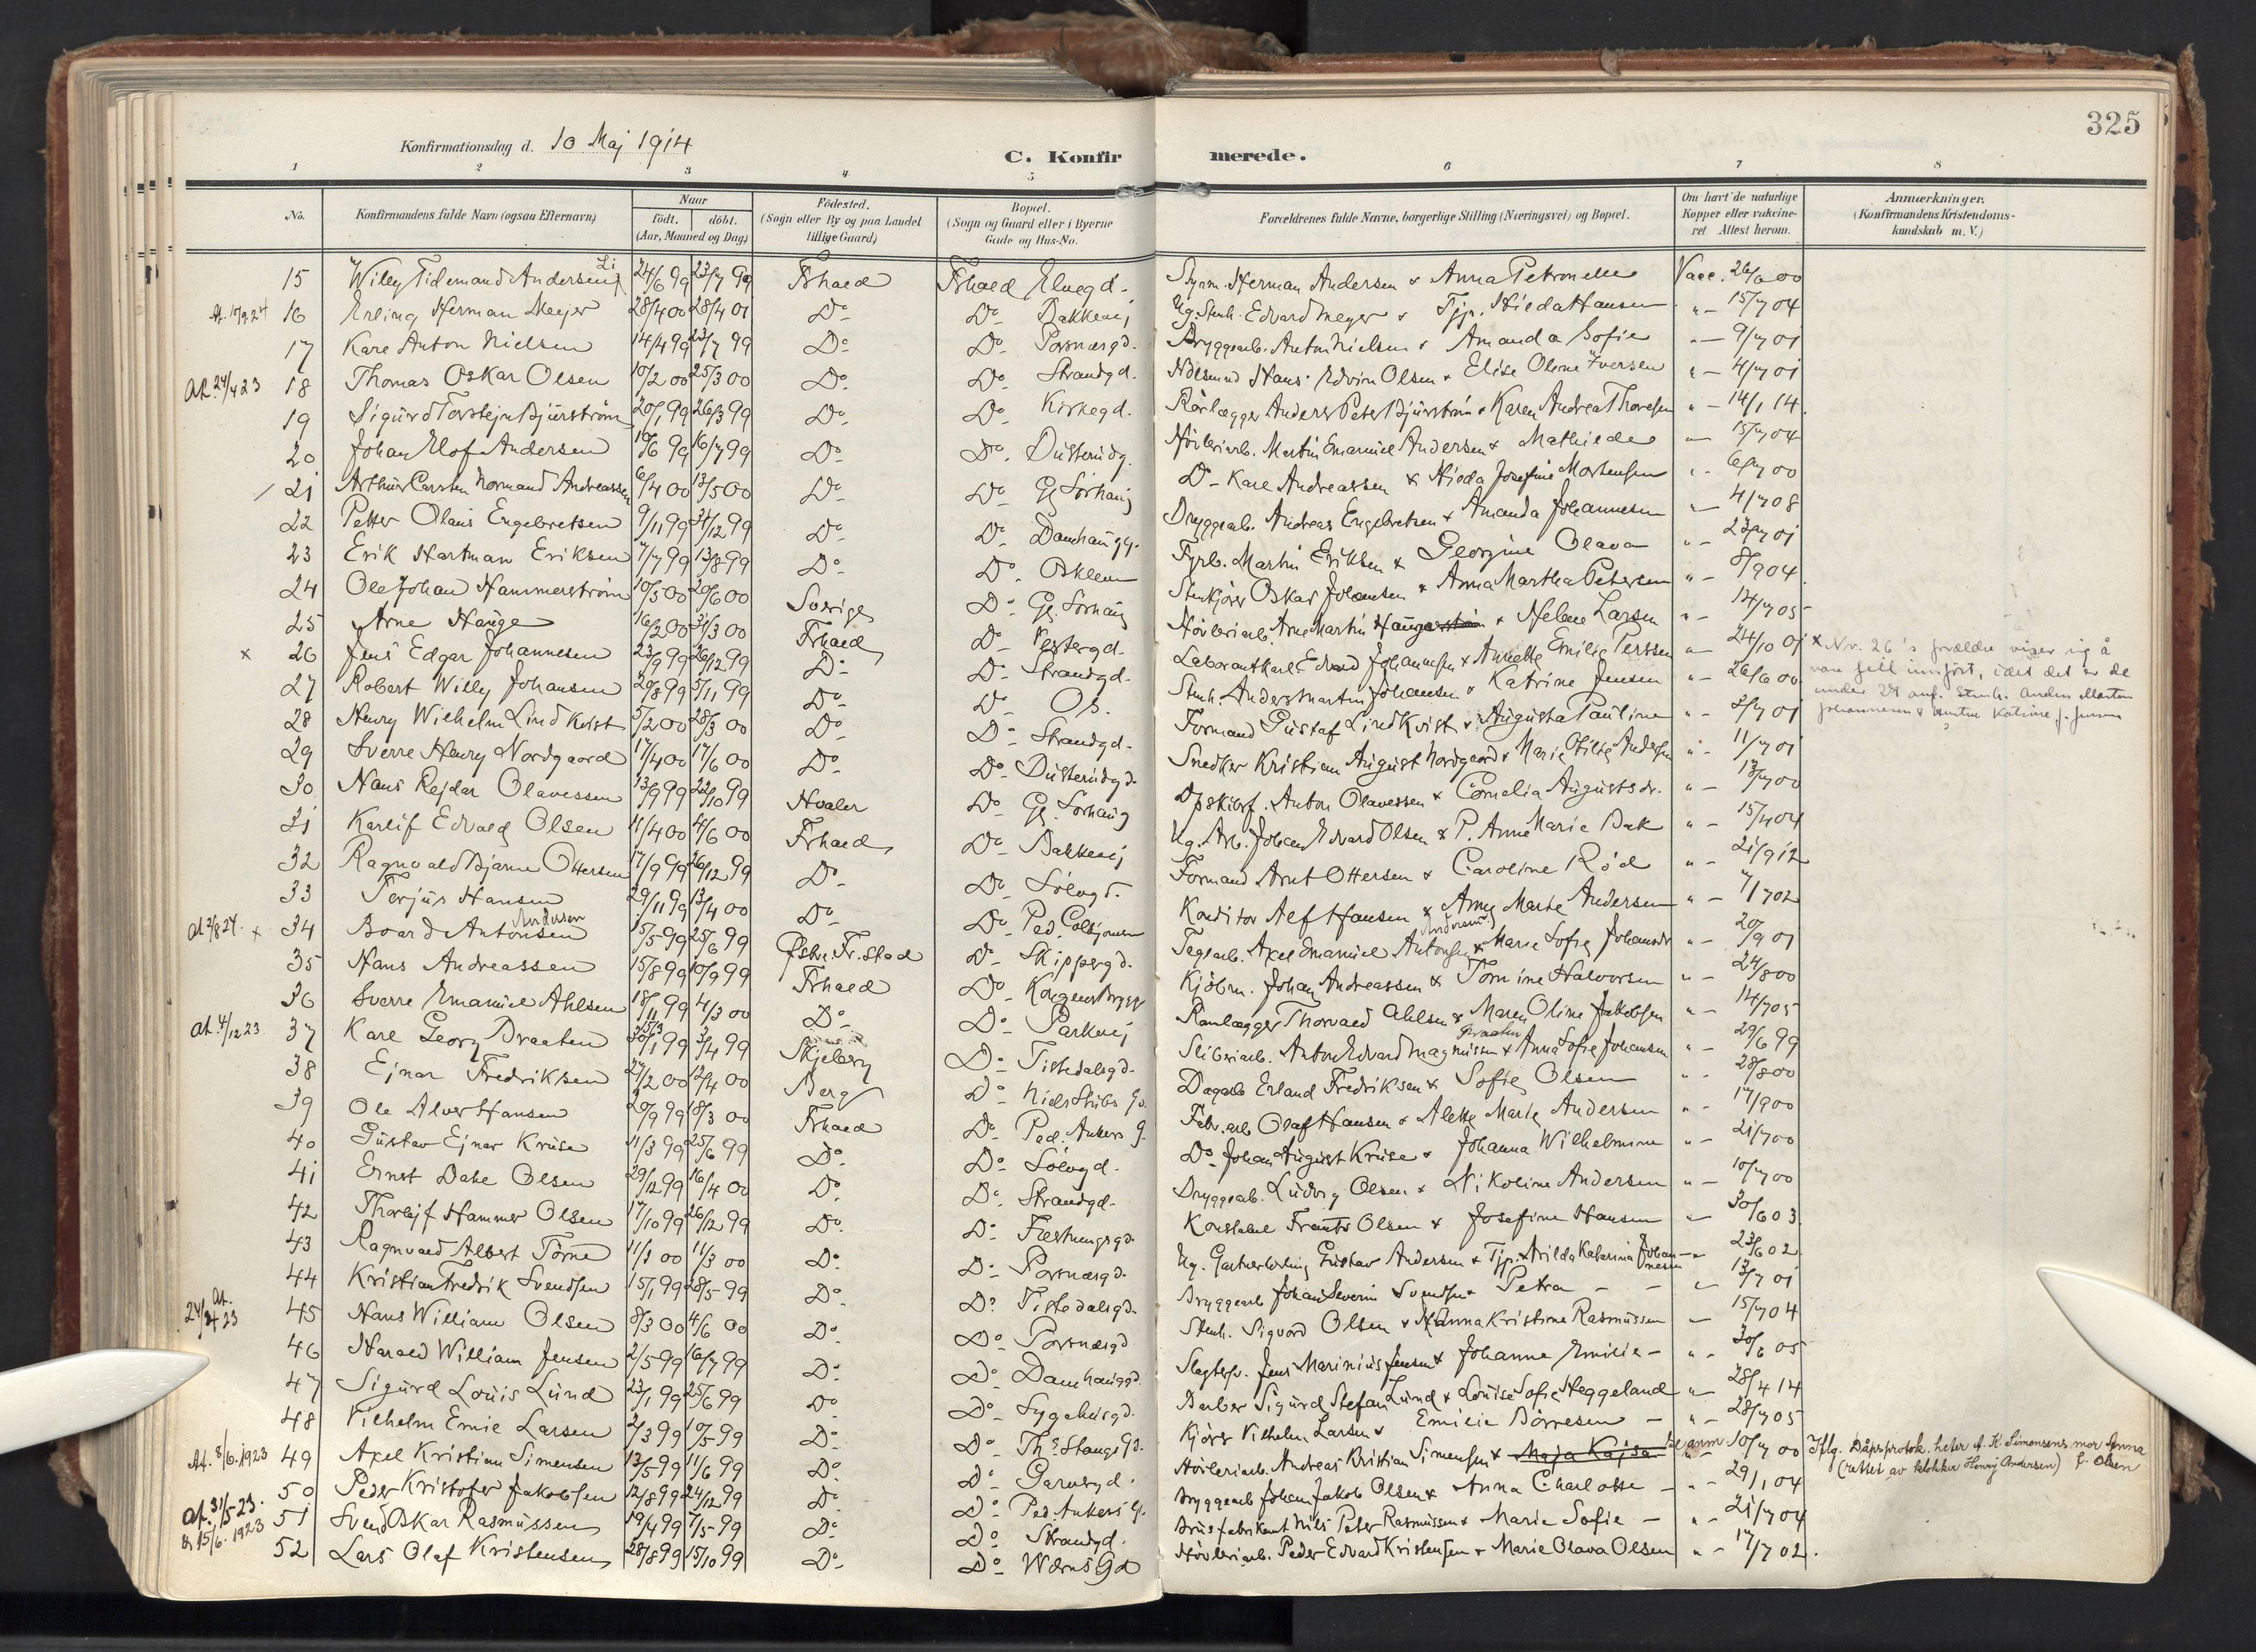 325
Konfirmationsdag d. 10 Maj 1914
C. Konfirmerede.
1 2 3 4 5 6 7 8
No. Konfirmandens fulde Navn (ogsaa Efternavn) Naar født. døbt. (Aar, Maaned og Dag) Fødested. (Sogn eller By og paa Landet tillige Gaard) Bopæl. (Sogn og Gaard eller i Byerne Gade og Hus-No. Forældrenes fulde Navne, borgerlige Stilling (Næringsvei) og Bopæl. Om havt de naturlige Kopper eller vakcineret Attest herom. Anmærkninger, (Konfirmandens Kristendomskundskab m. V.)
15 Willy Tidemand Andersen 24/6 99 23/7 99 Frhald Frhald Elvegd. Herman Andersen & Anna Petronelle Vacc. 26/6 00
At. 16 Erling Herman Meyer 28/4 00 28/4 01 Do Do Bakkevej Ug. Stenh. Edvard Meyer & Tjp. Hilda Hansen " - 15/7 04
17 Kare Anton Nielsen 14/4 99 23/7 99 Do Do Porsnæsgd. Bryggearb. Anton Nielsen & Amanda Sofie " - 9/7 01
At. 24/4 23 18 Thomas Oskar Olsen 10/2 00 25/3 00 Do Do Strandgd. Hans Edvin Olsen & Elise Oline Iversen " - 4/7 01
19 Sigurd Torstejn Bjürström 20/1 99 26/3 99 Do Do Kirkegd. Rørlægger Anders Peter Bjürström & Karen Andrea Thoresen " - 14/1 14
20 Johan Elof Andersen 19/6 99 16/7 99 Do Do Busterudg. Høvleriarb. Martin Emanuel Andersen & Mathilde " 15/7 04
21 Arthur Carsten Normand Andreassen 6/4 00 13/5 00 Do Do Gl. Sørhaug Do Karl Andreassen & Hilda Josefine Mortensen " - 6/7 00
22 Petter Olaus Engebretsen 9/11 99 31/12 99 Do Do Damhaugg. Bryggearb. Andreas Engebretsen & Amanda Johannesen " - 4/7 08
23 Erik Hartman Eriksen 7/7 99 13/8 99 Do Do Osklev Fyrb. Martin Eriksen & Georgine Olava " - 23/7 01
24 Ole Johan Hammerström 10/5 00 20/6 00 Sverige Do Gl. Sørhaug Stenkjører Oskar Johansen & Anna Martha Petersen " - 8/9 04
25 Arne Hauge 16/2 00 31/3 00 Frhald Do Vestergd. Høvleriarb. Arne Martin Hauge & Helene Larsen " - 14/7 05
x 26 Jens Edgar Johannesen 23/9 99 26/12 99 Do Do Strandgd. Laborantkarl Edvard Johannesen & Annette Emilie Perssen " - 24/10 01 x Nr. 26's forældre viser sig å
være feil innført, idet det er de
under 27 anf. Stenh. Anders Martin
Johannesen & hustru Katrine f. Jensen
27 Robert Willy Johansen 20/8 99 5/11 99 Do Do Os. Stenh. Anders Martin Johansen & Katrine Jensen " - 26/6 00
28 Henry Wilhelm Lindkvist 5/2 00 28/3 00 Do Do Strandgd. Formand Gustaf Lindkvist & Augusta Pauline " - 2/7 01
29 Sverre Henry Nordgaard 17/4 00 17/6 00 Do Do Busterudgd. Snedker Kristian August Nordgaard & Marie Otilie Andersen " - 11/7 01
30 Hans Rejdar Olavessen 13/9 99 22/10 99 Hvaler Do Gl. Sørhaug Anton Olavessen & Cornelia Augustsdr. " - 13/7 00
31 Karlif Edvald Olsen 11/4 00 4/6 00 Frhald Do Bakkevej Ug. Arb. Johan Edvard Olsen & P. Anne Marie Bak " - 15/4 04
32 Ragnvald Bjarne Ottersen 17/9 99 26/12 99 Do Do Sølvgd. Formand Arnt Ottersen & Caroline Rød " - 21/9 12
33 Terjus Hansen 29/11 99 13/4 00 Do Do Ped. Colbjørnsen Konditor Alf Hansen & Anny Marie Andersen " - 7/7 02
At 2/8 24. x 34 Bård Antonsen Andersen 15/5 99 25/6 99 Østre Fr.stad Do Skippergd. Teglarb. Axel Emanuel Antonsen Andersen & Marie Sofie Johansdr " - 20/9 01
35 Hans Andreassen 15/8 99 10/9 99 Frhald Do Kongens Brygge Kjøbm. Johan Andreassen & Tomine Halvorsen " - 24/8 00
36 Sverre Emanuel Ahlsen 18/11 99 4/3 00 Do Do Parkvej Rørlægger Thorvald Ahlsen & Maren Oline Jakobsen " - 14/7 05
At. 4/12 23. 37 Karl Georg Braaten 30/1 99 3/4 99 Skjeberg Do Tistedalsgd. Sliberiarb. Anton Edvard Magnussen Braaten & Anna Sofie Johansen " - 29/6 99
38 Ejnar Fredriksen 27/2 00 12/4 00 Berg Do Niels Stubs Gd. Dagarb Erland Fredriksen & Sofie Olsen " - 28/8 00
39 Ole Alver Hansen 20/9 99 18/3 00 Frhald Do Ped. Ankers G. Fabr. arb Olaf Hansen & Alette Marie Andersen " - 17/9 00
40 Gustav Ejnar Kruse 11/3 99 25/6 99 Do Do Sølvgd. Do Johan August Kruse & Johanna Wilhelmine " - 21/7 00
41 Ernst Dahl Olsen 29/12 99 16/4 00 Do Do Strandgd. Bryggearb. Ludvig Olsen & Nikoline Andersen " - 10/7 00
42 Thorlejf Hammer Olsen 17/10 99 26/12 99 Do Do Fæstningsgd. Konstabel Frants Olsen & Josefine Hansen " 30/6 03
43 Ragnvald Albert Torne 11/3 00 11/3 00 Do Do Porsnæsgd. Ug. Gartnerlærling Gustav Andersen & Tjp. Arilda Katarina Johannesen " 23/6 02
44 Kristian Fredrik Svendsen 15/1 99 28/5 99 Do Do Tistedalsgd. Bryggearb Johan Severin Svendsen & Petra - - " 13/7 01
At. 24/4 23 45 Hans William Olsen 8/3 00 4/6 00 Do Do Porsnæsgd Stenh. Sigvard Olsen & Hanna Kristine Rasmussen " 15/7 04
46 Harald William Jensen 2/5 99 16/7 99 Do Do Damhauggd. Jens Marinius Jensen & Johanne Emilie - " - 30/6 05
47 Sigurd Louis Lund 23/1 99 25/6 99 Do Do Sygehusgd. Barber Sigurd Stefan Lund & Louise Sofie Heggeland " 28/4 14
48 Vilhelm Emil Larsen 2/3 99 10/5 99 Do Do Ths Stangs Gd. Kjører Vilhelm Larsen & Emilie Børresen - " - 28/7 05
At. 8/6. 1923 49 Axel Kristian Simensen 13/5 99 11/6 99 Do Do Garvergd. Høvleriarb. Andreas Kristian Simensen & Maja Kajsa se anm 10/7 00 Iflg. Dåpsprotok. heter A. K. Simensens mor Anna
(rettet av klokker Henry Andersen) f. Olsen
50 Peder Kristofer Jakobsen 12/8 99 24/12 99 Do Do Ped. Ankers G. Bryggearb Johan Jakob Olsen & Anna Charlotte - " - 29/1 04
At. 31/5-23. & 15/6. 1923 51 Svend Oskar Rasmussen 19/4 99 7/5 99 Do Do Strandgd. Brusfabrikant Nils Peter Rasmussen & Marie Sofie - " - 21/7 04
52 Lars Olaf Kristensen 28/8 99 15/10 99 Do Do Wærns Gd Høvleriarb. Peder Edvard Kristensen & Marie Olava Olsen " - 17/7 02.